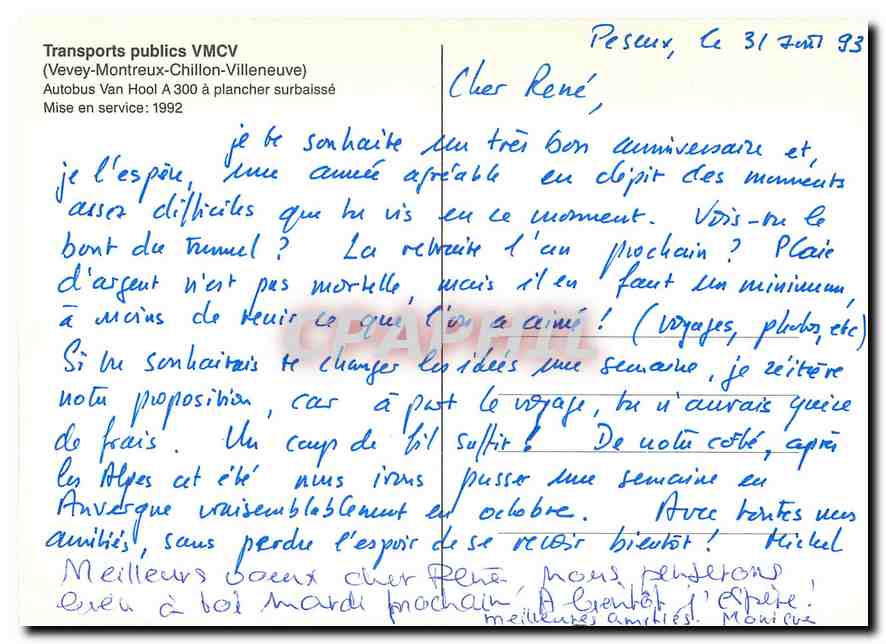 Transports publics VMCV
(Vevey-Montreux-Chillon-Villeneuve)
Autobus Van Hool A 300 à plancher surbaissé
Mise en service: 1992
Peseux, le 31 août 93
Cher René,
je te souhaite un très bon anniversaire et,
je l'espère, une année agréable en dépit des moments
assez difficiles que tu vis en ce moment. Vois-tu le
bout du tunnel? La retraite l'an prochain? Plaie
d'argent n'est pas mortelle, mais il en faut un minimum,
à moins de renier ce que l'on a aimé! (voyages, photos, etc)
Si tu souhaitais te changer les idées une semaine, je réitère
notre proposition, car à part le voyage, tu n'aurais guère
de frais. Un coup de fil suffit! De notre côté, après
les Alpes cet été nous irons passer une semaine en
Auvergne vraisemblablement en octobre. Avec toutes nos
amitiés, sans perdre l'espoir de se revoir bientôt! Michel
Meilleurs voeux cher René, nous penserons
bien à toi mardi prochain! A bientôt j'espère!
meilleures amitiés. Monique
CPAPHIL